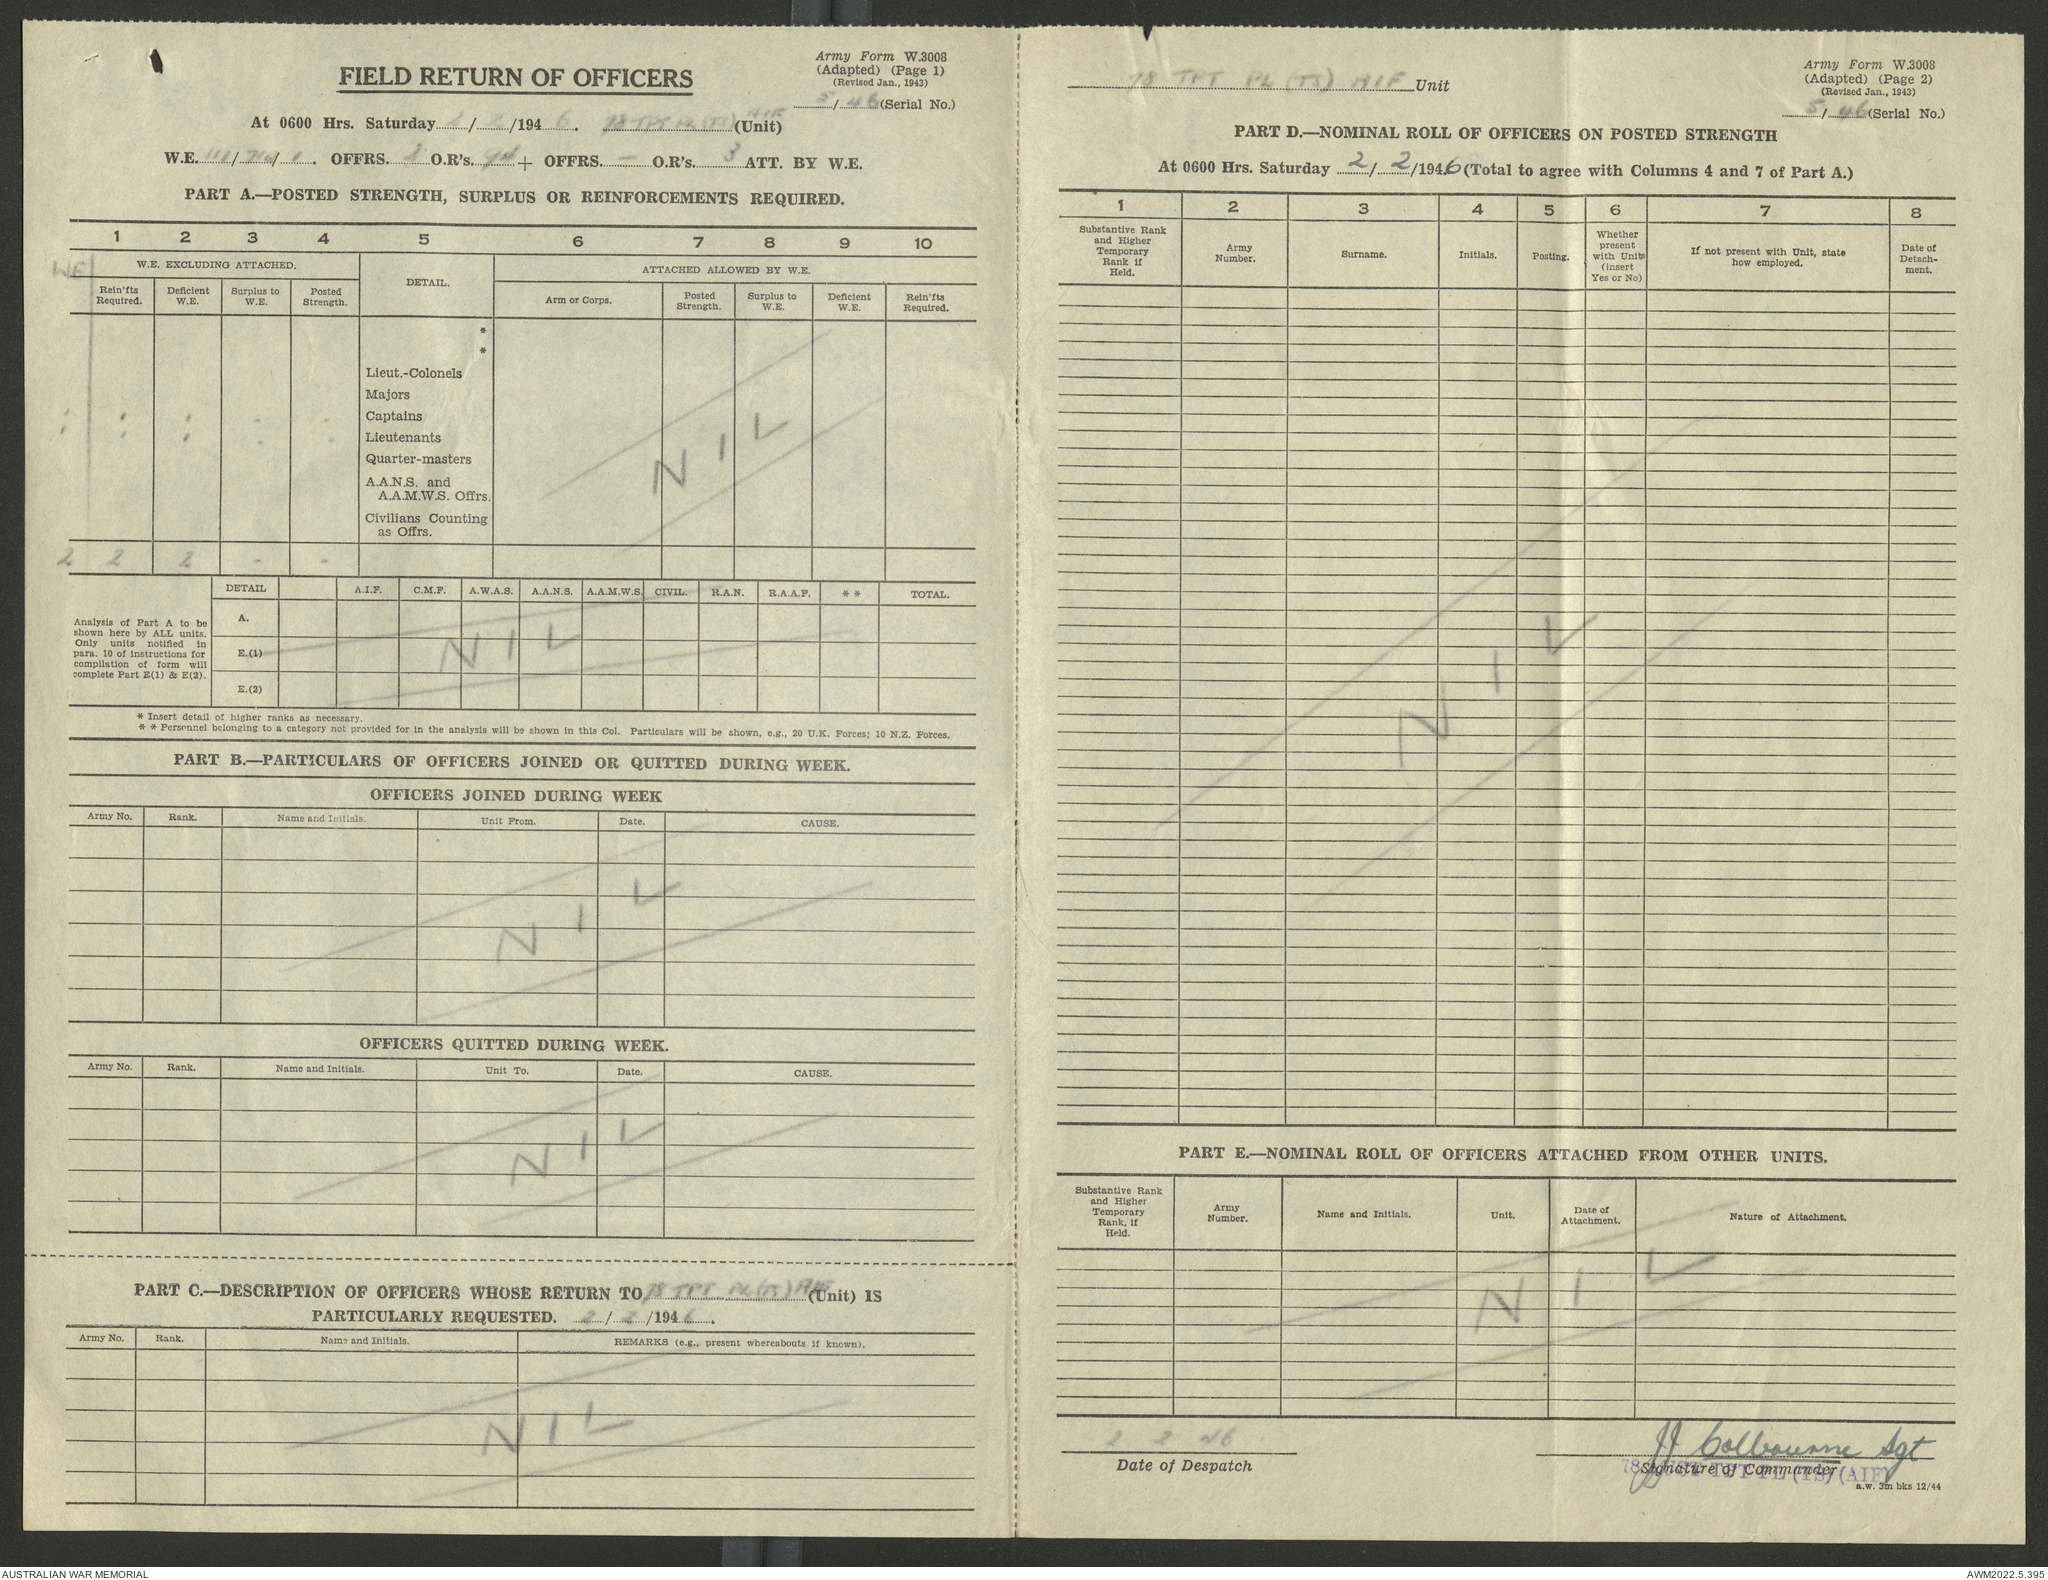 Army Form W.3008
(Adapted) (Page 1)
(Revised Jan., 1943)
5/46 (Serial No.)
FIELD RETURN OF OFFICERS
At 0600 Hrs. Saturday 2/2/1946. 78 TPT PL (TS) AIF (Unit)
W.E. 111/ / . OFFRS. 2 O.R's. 94 + OFFRS. – O.R's. 3 ATT. BY W.E.
PART A.—POSTED STRENGTH, SURPLUS OR REINFORCEMENTS REQUIRED.
1 2 3 4 5 6 7 8 9 10
WE
W.E. EXCLUDING ATTACHED. DETAIL. ATTACHED ALLOWED BY W.E.
Rein'fts Required. Deficient W.E. Surplus to W.E. Posted Strength. Arm or Corps. Posted Strength. Surplus to W.E. Deficient W.E. Rein'fts Required.
*
*
Lieut.-Colonels
Majors
Captains
Lieutenants
Quarter-masters
A.A.N.S. and
A.A.M.W.S. Offrs.
Civilians Counting
as Offrs.
NIL
2 2 2 - -
DETAIL A.I.F. C.M.F. A.W.A.S. A.A.N.S. A.A.M.W.S. CIVIL. R.A.N. R.A.A.F. * * TOTAL.
Analysis of Part A to be
shown here by ALL units.
Only units notified in
para. 10 of instructions for
compilation of form will
complete Part E(1) & E(2).
A.
E.(1)
E.(2)
NIL
* Insert detail of higher ranks as necessary.
* * Personnel belonging to a category not provided for in the analysis will be shown in this Col. Particulars will be shown, e.g., 20 U.K. Forces; 10 N.Z. Forces.
PART B.—PARTICULARS OF OFFICERS JOINED OR QUITTED DURING WEEK.
OFFICERS JOINED DURING WEEK
Army No. Rank. Name and Initials. Unit From. Date. CAUSE.
NIL
OFFICERS QUITTED DURING WEEK.
Army No. Rank. Name and Initials. Unit To. Date. CAUSE.
NIL
PART C.—DESCRIPTION OF OFFICERS WHOSE RETURN TO 78 TPT PL (TS) AIF (Unit) IS
PARTICULARLY REQUESTED. 2/2/1946.
Army No. Rank. Name and Initials. REMARKS (e.g., present whereabouts if known).
NIL
78 TPT PL (TS) AIF Unit
Army Form W.3008
(Adapted) (Page 2)
(Revised Jan., 1943)
5/46 (Serial No.)
PART D.—NOMINAL ROLL OF OFFICERS ON POSTED STRENGTH
At 0600 Hrs. Saturday 2/2/1946 (Total to agree with Columns 4 and 7 of Part A.)
1 2 3 4 5 6 7 8
Substantive Rank and Higher Temporary Rank if Held. Army Number. Surname. Initials. Posting. Whether present with Unit (insert Yes or No) If not present with Unit, state how employed. Date of Detach-ment.
NIL
PART E.—NOMINAL ROLL OF OFFICERS ATTACHED FROM OTHER UNITS.
Substantive Rank and Higher Temporary Rank, if Held. Army Number. Name and Initials. Unit. Date of Attachment. Nature of Attachment.
NIL
2 2 46
Date of Despatch
JJ Colbourne Sgt
Signature of Commander
78 AUST TPT PL (TS) (AIF)
a.w. 3m bks 12/44
AUSTRALIAN WAR MEMORIAL
AWM2022.5.395